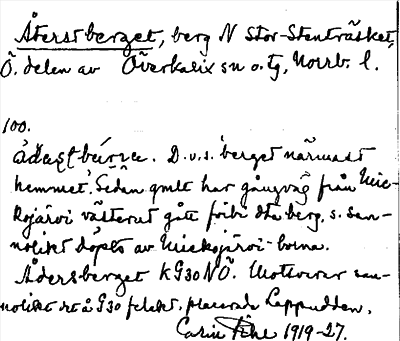 Återstberget, berg N Stor-Stenträsket,
Ö. delen av Överkalix sn o. tg, Norrb. l.
100.
D.v.s. 'berget närmast
hemmet'. Sedan gmlt har gångväg från Mie-
kojärvi västerut gått förbi dta berg, s. san-
nolikt döpts av Miekojärvi-borna.
Ådersberget KG30NÖ. Motsvarar san-
nolikt det å G30 felakt. placerade Lappudden.
Carin Pihl 1919-27.